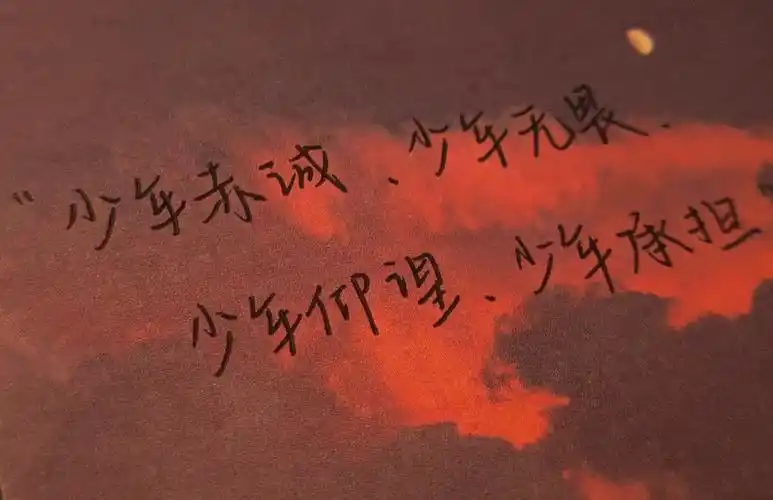 “少年赤诚、少年无畏、
少年仰、少年承担”